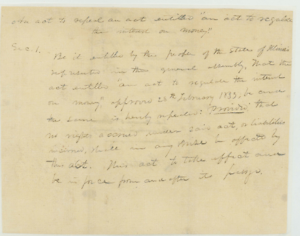 An act to repeal an act entitled "an act to regulate
the interest on money"
Sec. 1. Be it enacted by the people of the State of Illinois
represented in the General Assembly, That the
act entitled "an act to regulate the interest
on money" approved February 1833, be and
the same is hereby repealed: Provided that
no rights under said act,
shall in any wise be affected by
this act. This act to take effect and
be in force from and after its passage.